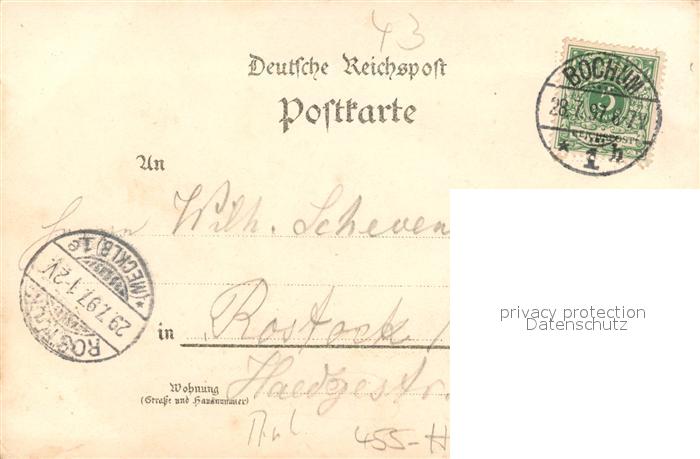 43
Deutsche Reichspost
Postkarte
BOCHUM
28.7.97.
* 1 h
5
REICHSPOST
An
Herrn Wilh. Scheven
ROSTOCK
(MECKLB) 1e
29.7.97. 1-2V.
in Rostock
Wohnung
(Straße und Hausnummer)
455-H
privacy protection
Datenschutz